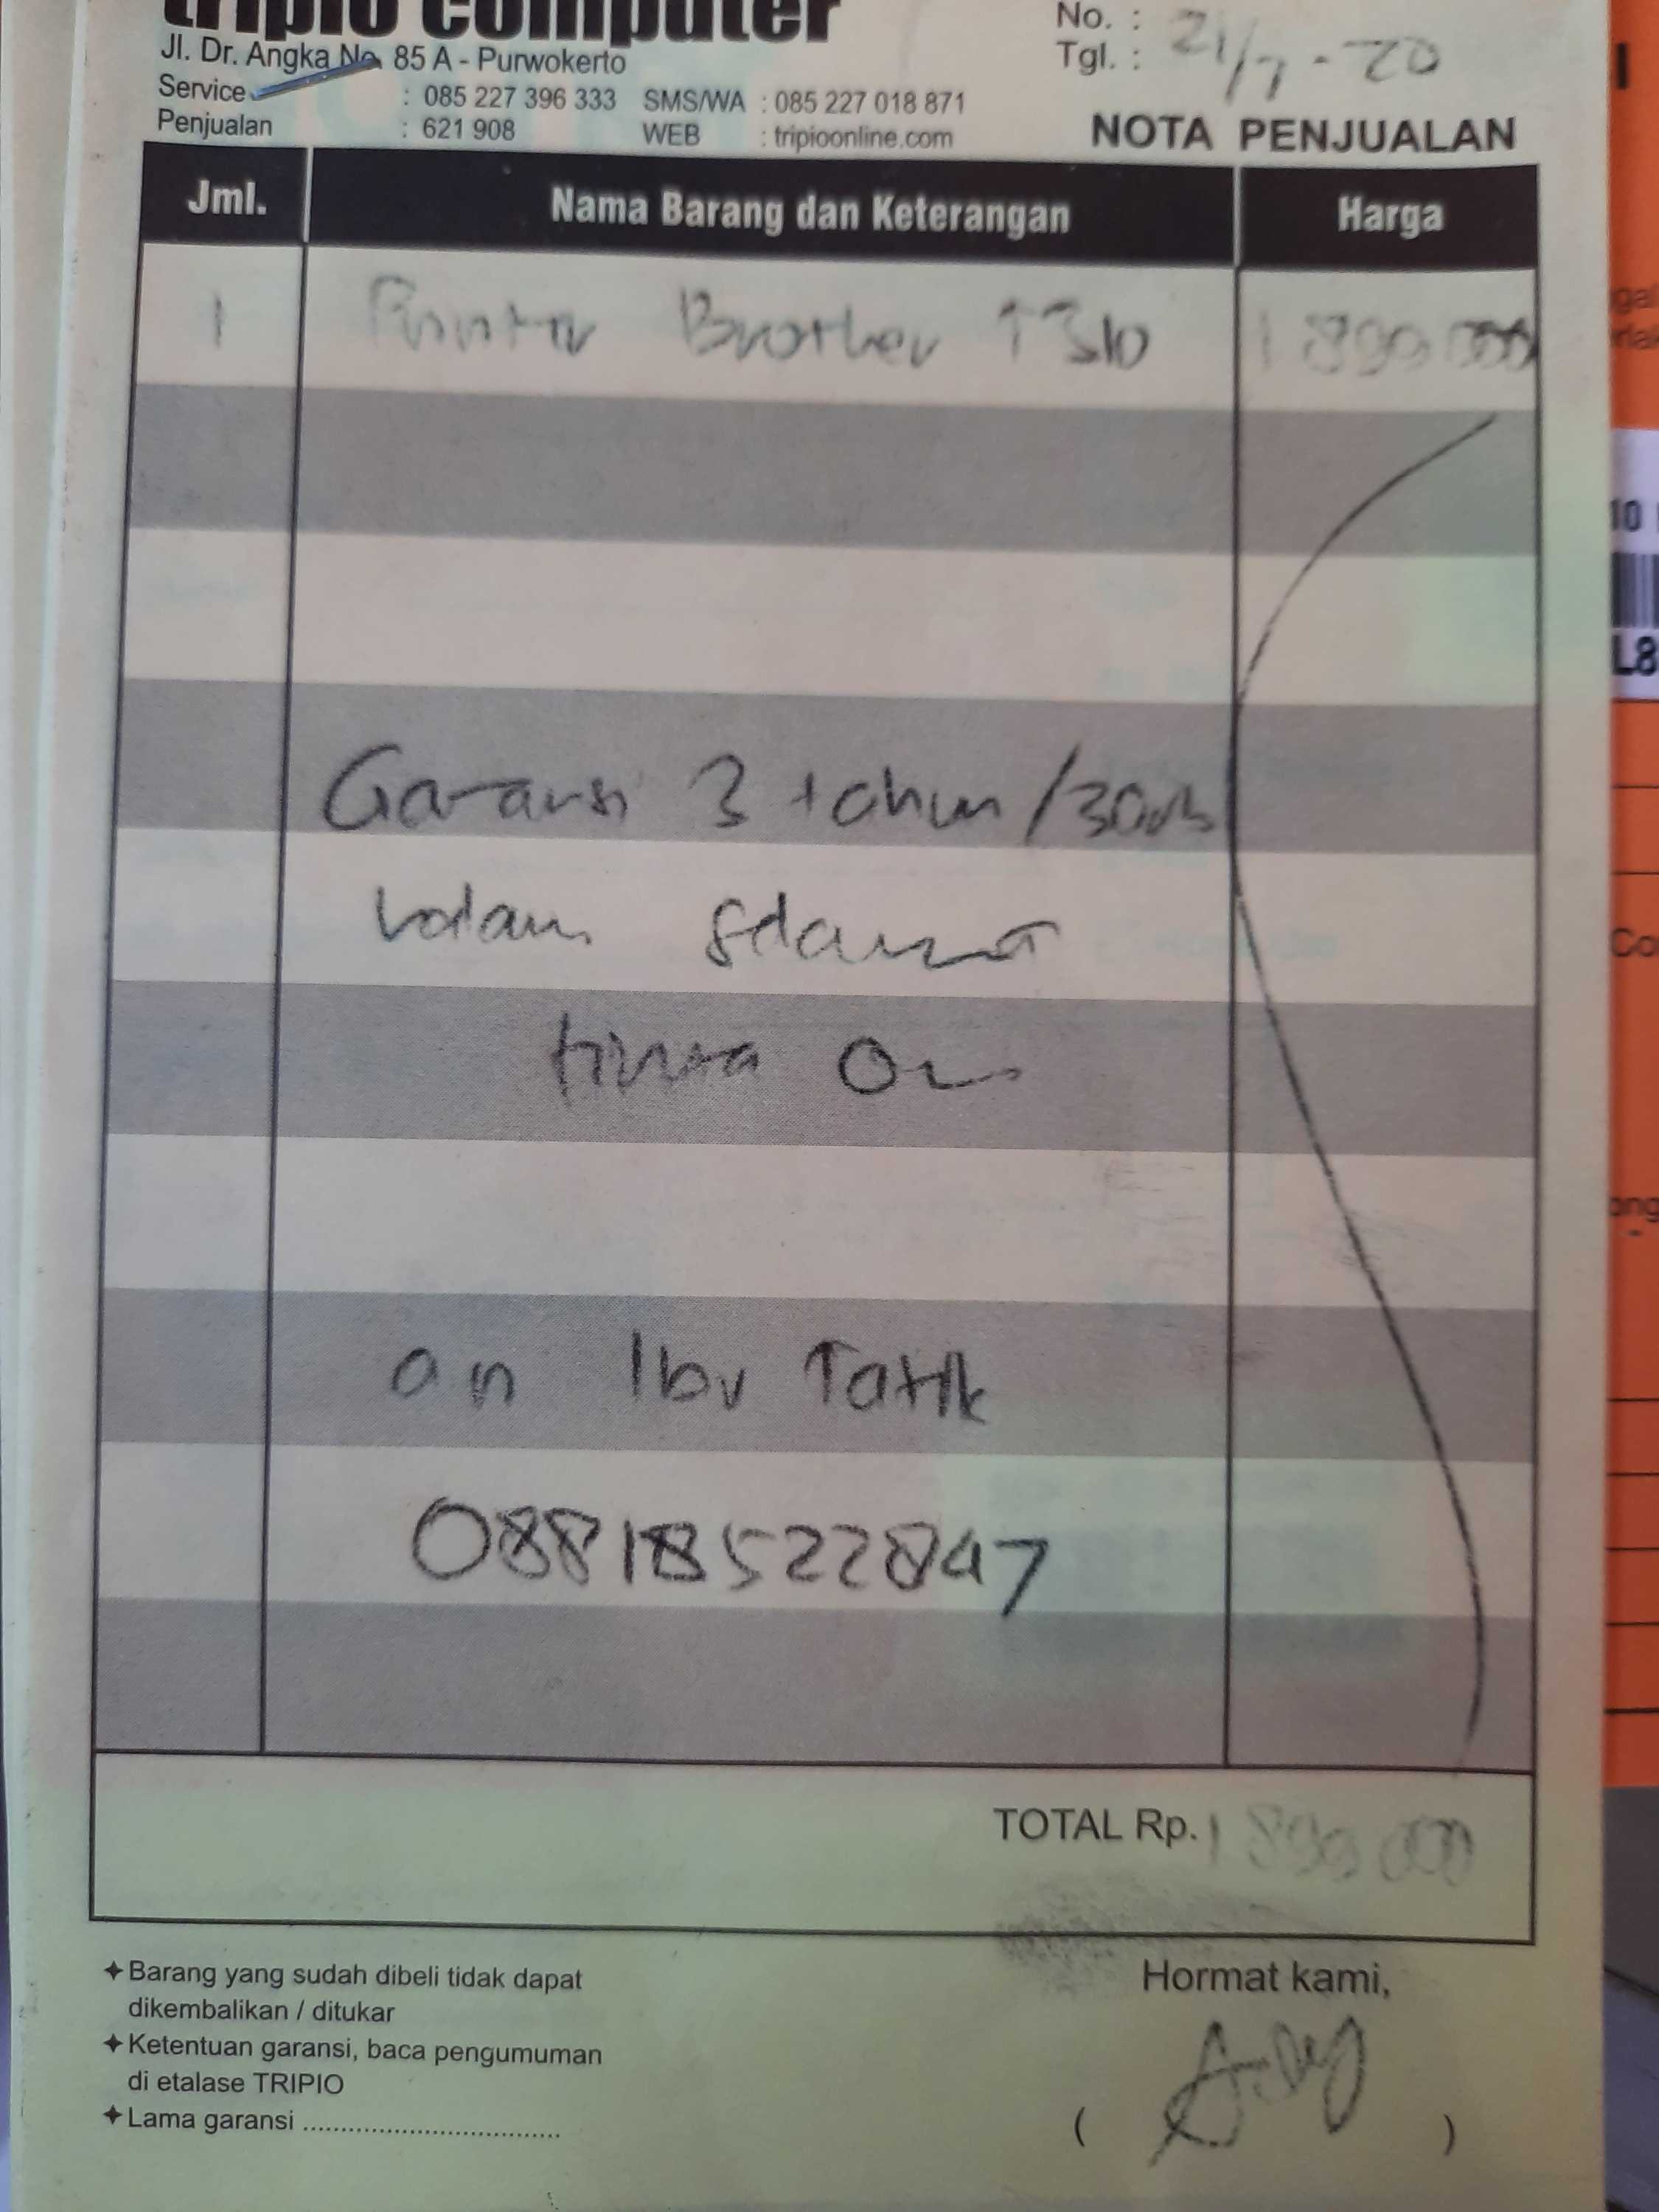 tripio computer
Jl. Dr. Angka No. 85 A - Purwokerto
Service : 085 227 396 333 SMS/WA : 085 227 018 871
Penjualan : 621 908 WEB : tripioonline.com
No. :
Tgl. : 21/7 - 20
NOTA PENJUALAN
Jml. Nama Barang dan Keterangan Harga
1 Printer Brother T310 1 890 000
Garansi 3 tahun /30rb
selama
tinta
an Ibu Tatik
08818522847
TOTAL Rp. 1 890 000
Barang yang sudah dibeli tidak dapat
dikembalikan / ditukar
Ketentuan garansi, baca pengumuman
di etalase TRIPIO
Lama garansi ..................................
Hormat kami,
( )
10
L8
Co